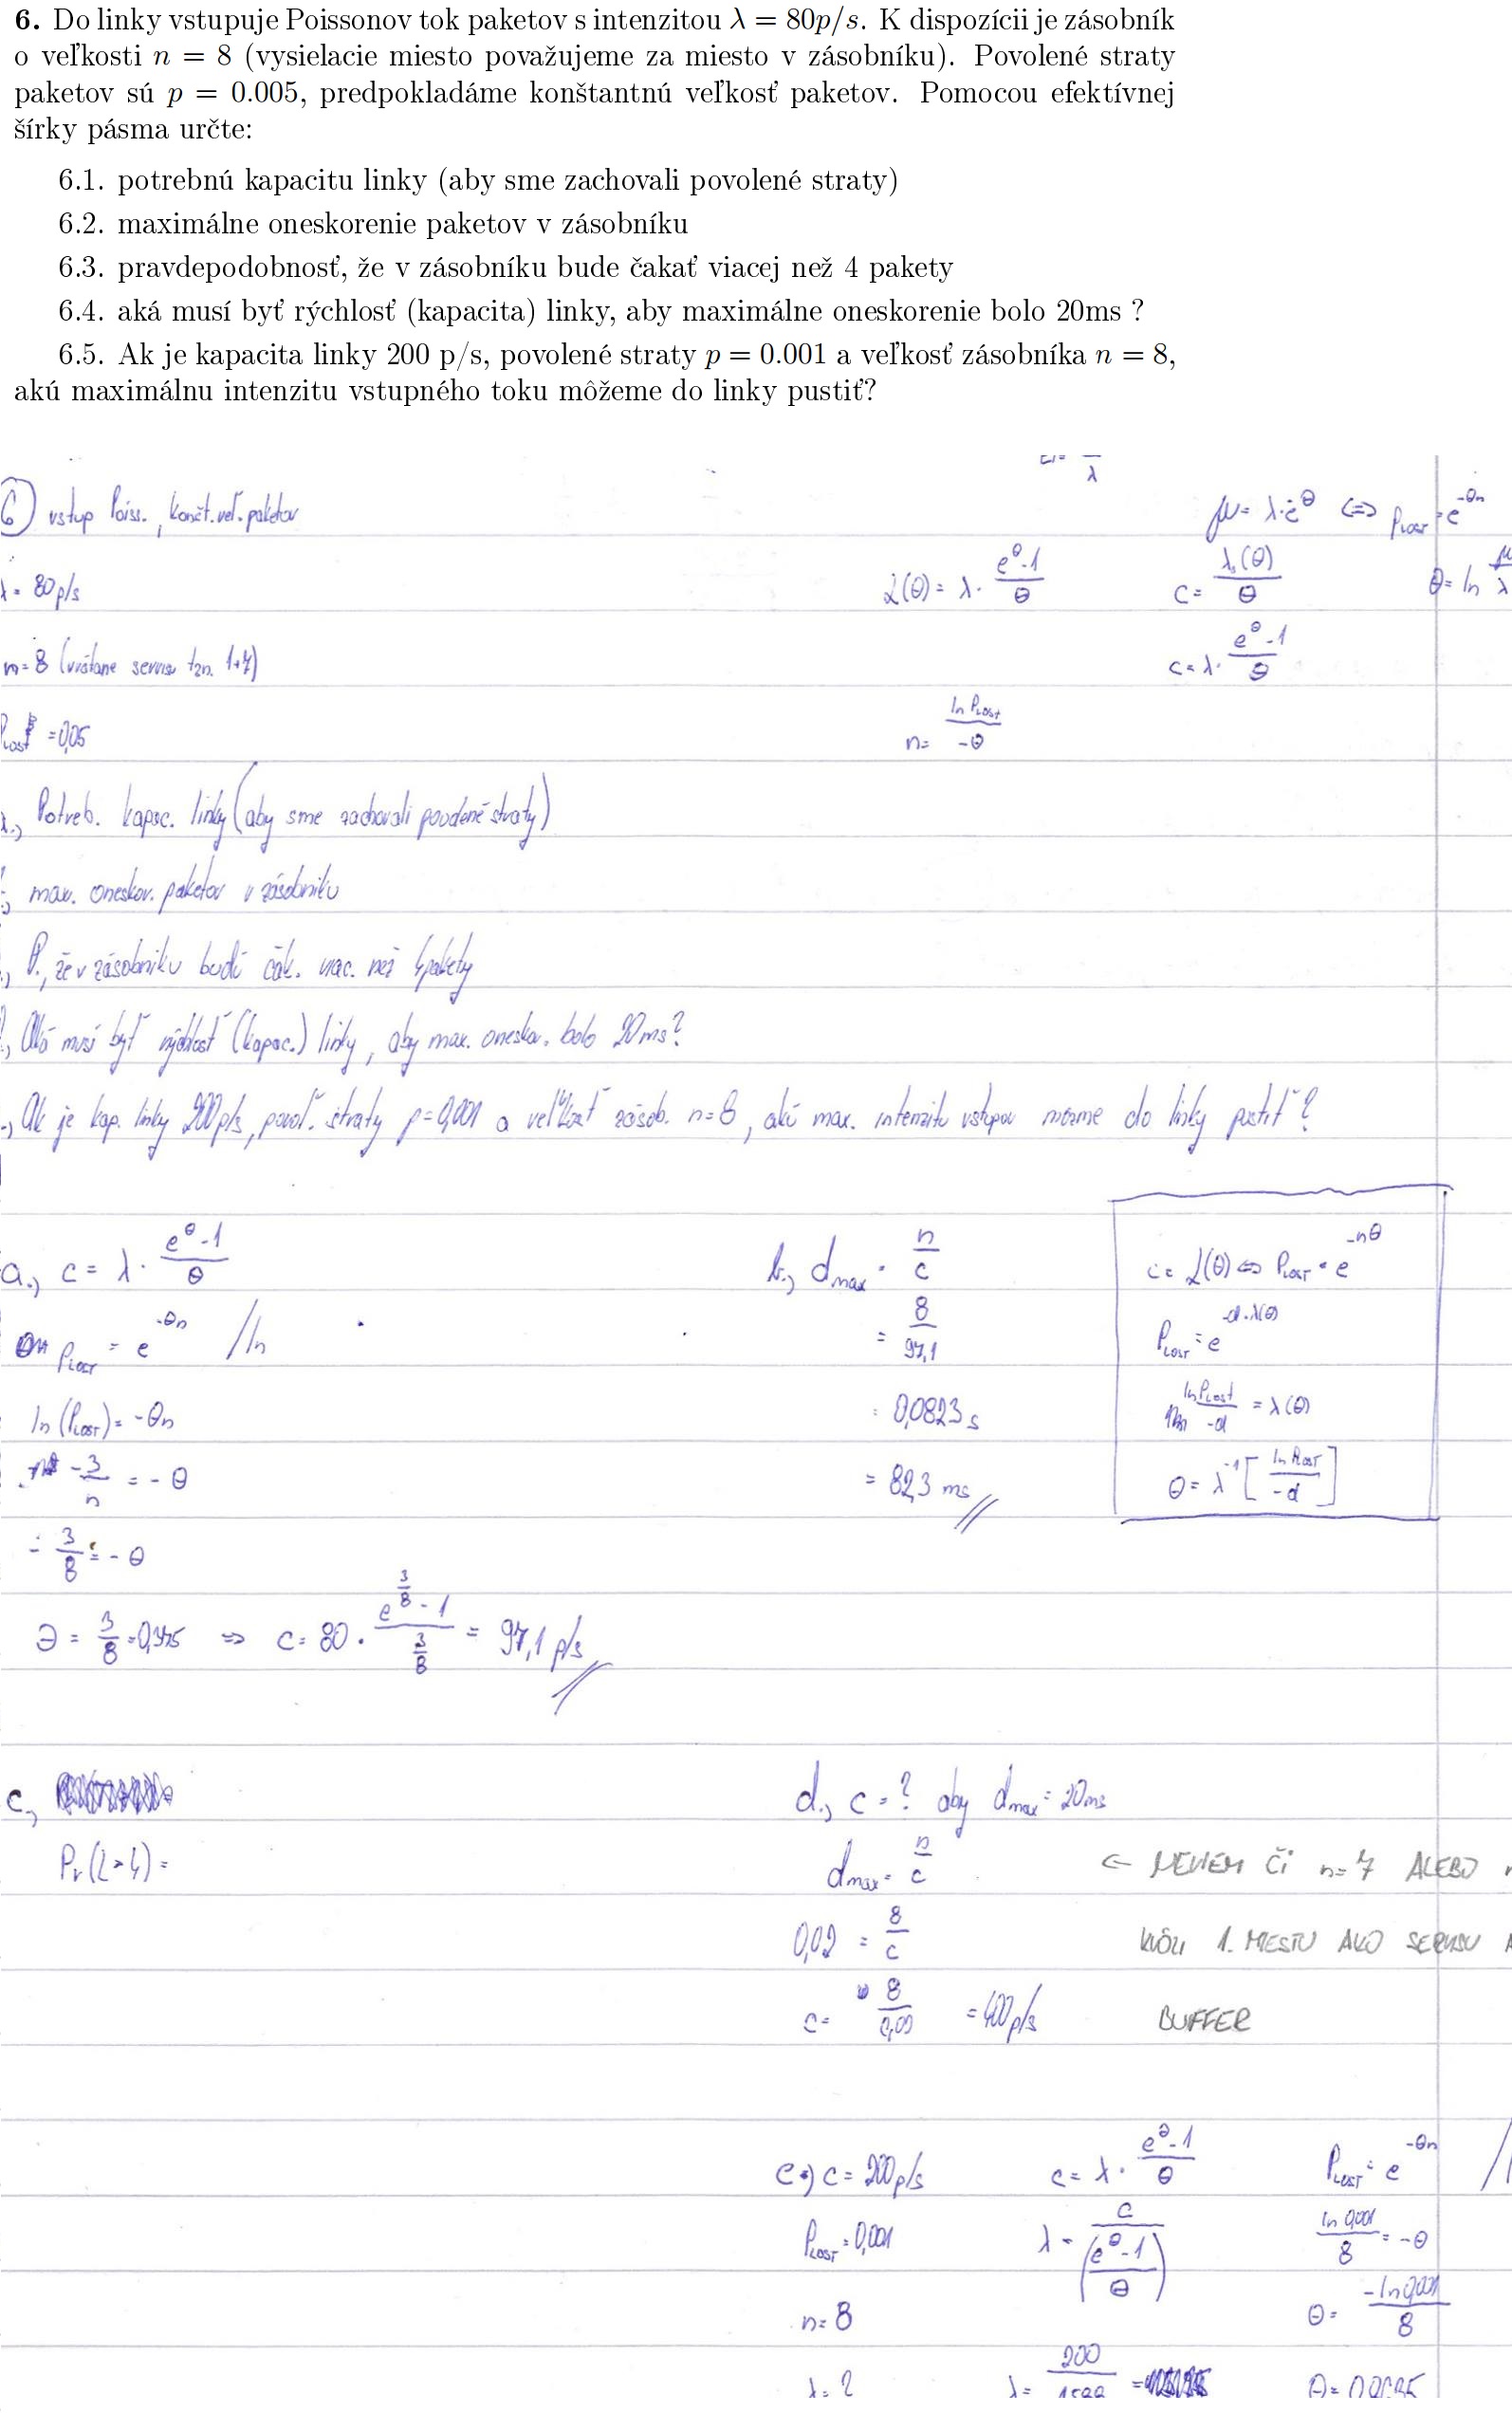 6. Do linky vstupuje Poissonov tok paketov s intenzitou λ = 80p/s. K dispozícii je zásobník
o veľkosti n = 8 (vysielacie miesto považujeme za miesto v zásobníku). Povolené straty
paketov sú p = 0.005, predpokladáme konštantnú veľkosť paketov. Pomocou efektívnej
šírky pásma určte:
6.1. potrebnú kapacitu linky (aby sme zachovali povolené straty)
6.2. maximálne oneskorenie paketov v zásobníku
6.3. pravdepodobnosť, že v zásobníku bude čakať viacej než 4 pakety
6.4. aká musí byť rýchlosť (kapacita) linky, aby maximálne oneskorenie bolo 20ms ?
6.5. Ak je kapacita linky 200 p/s, povolené straty p = 0.001 a veľkosť zásobníka n = 8,
akú maximálnu intenzitu vstupného toku môžeme do linky pustiť?
6 vstup Poiss., konšt. veľ. paketov
μ = λ·e^θ <=> P_LOST = e^-θn
λ = 80 p/s
L(θ) = λ · (e^θ-1)/θ
c = λ(θ)/θ
θ = ln μ/λ
n = 8 (vrátane servisu tzn. 1+7)
c = λ · (e^θ-1)/θ
P_LOST = 0,05
n = ln P_LOST / -θ
Potreb. kapac. linky (aby sme zachovali povolené straty)
max. oneskor. paketov v zásobníku
P., že v zásobníku budú čak. viac. než 4 pakety
Aká musí byť rýchlosť (kapac.) linky, aby max. oneskor. bolo 20ms?
Ak je kap. linky 200p/s, povol. straty p=0,001 a veľkosť zásob. n=8, akú max. intenzitu vstupov môžme do linky pustiť?
a., c = λ · (e^θ-1)/θ
P_LOST = e^-θn /ln
ln(P_LOST) = -θn
-3/n = -θ
-3/8 = -θ
θ = 3/8 = 0,375 => c = 80 · (e^(3/8) - 1)/(3/8) = 97,1 p/s
b., d_max = n/c
= 8/97,1
= 0,0823 s
= 82,3 ms
c = L(θ) <=> P_LOST = e^-nθ
P_LOST = e^-d·λ(θ)
ln P_LOST / -d = λ(θ)
θ = λ^-1 [ln P_LOST / -d]
c.,
Pr(L>4) =
d., c = ? aby d_max = 20ms
d_max = n/c
← NEVIEM ČI n=7 ALEBO
0,02 = 8/c
KVÔLI 1. MIESTU AKO SERVISU
c = 8/0,02 = 400 p/s
BUFFER
e.) c = 200 p/s
c = λ · (e^θ-1)/θ
P_LOST = e^-θn
P_LOST = 0,001
λ = c/((e^θ-1)/θ)
ln 0,001 / 8 = -θ
n = 8
θ = -ln 0,001 / 8
λ = ?
λ = 200/
θ =